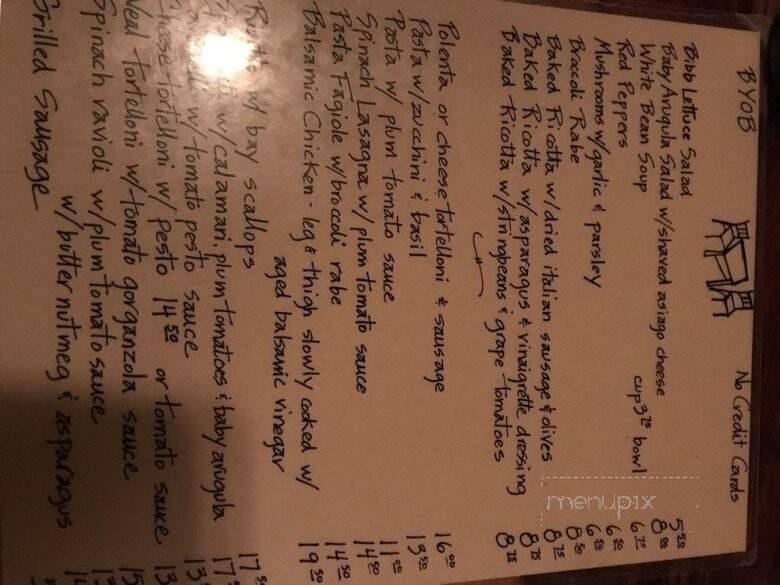 BYOB No Credit Cards
Bibb Lettuce Salad 5.50
Baby Arugula Salad w/shaved asiago cheese 8.00
White Bean Soup cup 3.75 bowl 6.75
Red Peppers 6.50
Mushrooms w/garlic & parsley 6.50
Broccoli Rabe 8.50
Baked Ricotta w/dried italian sausage & olives 8.75
Baked Ricotta w/asparagus & vinaigrette dressing 8.75
Baked Ricotta w/stringbeans & grape tomatoes 8.75
Polenta or cheese tortelloni & sausage 16.00
Pasta w/zucchini & basil 13.50
Pasta w/ plum tomato sauce 11.00
Spinach Lasagna w/ plum tomato sauce 14.50
Pasta Fagiole w/broccoli rabe 14.50
Balsamic Chicken - leg & thigh slowly cooked w/ 19.50
aged balsamic vinegar
w/ bay scallops 17.50
w/calamari, plum tomatoes & baby arugula 17
w/ tomato pesto sauce 13
Cheese tortelloni w/ pesto 14.50 or tomato sauce 13
Veal tortelloni w/tomato gorganzola sauce 15
Spinach ravioli w/plum tomato sauce
w/butter nutmeg & asparagus
Grilled Sausage
menupix